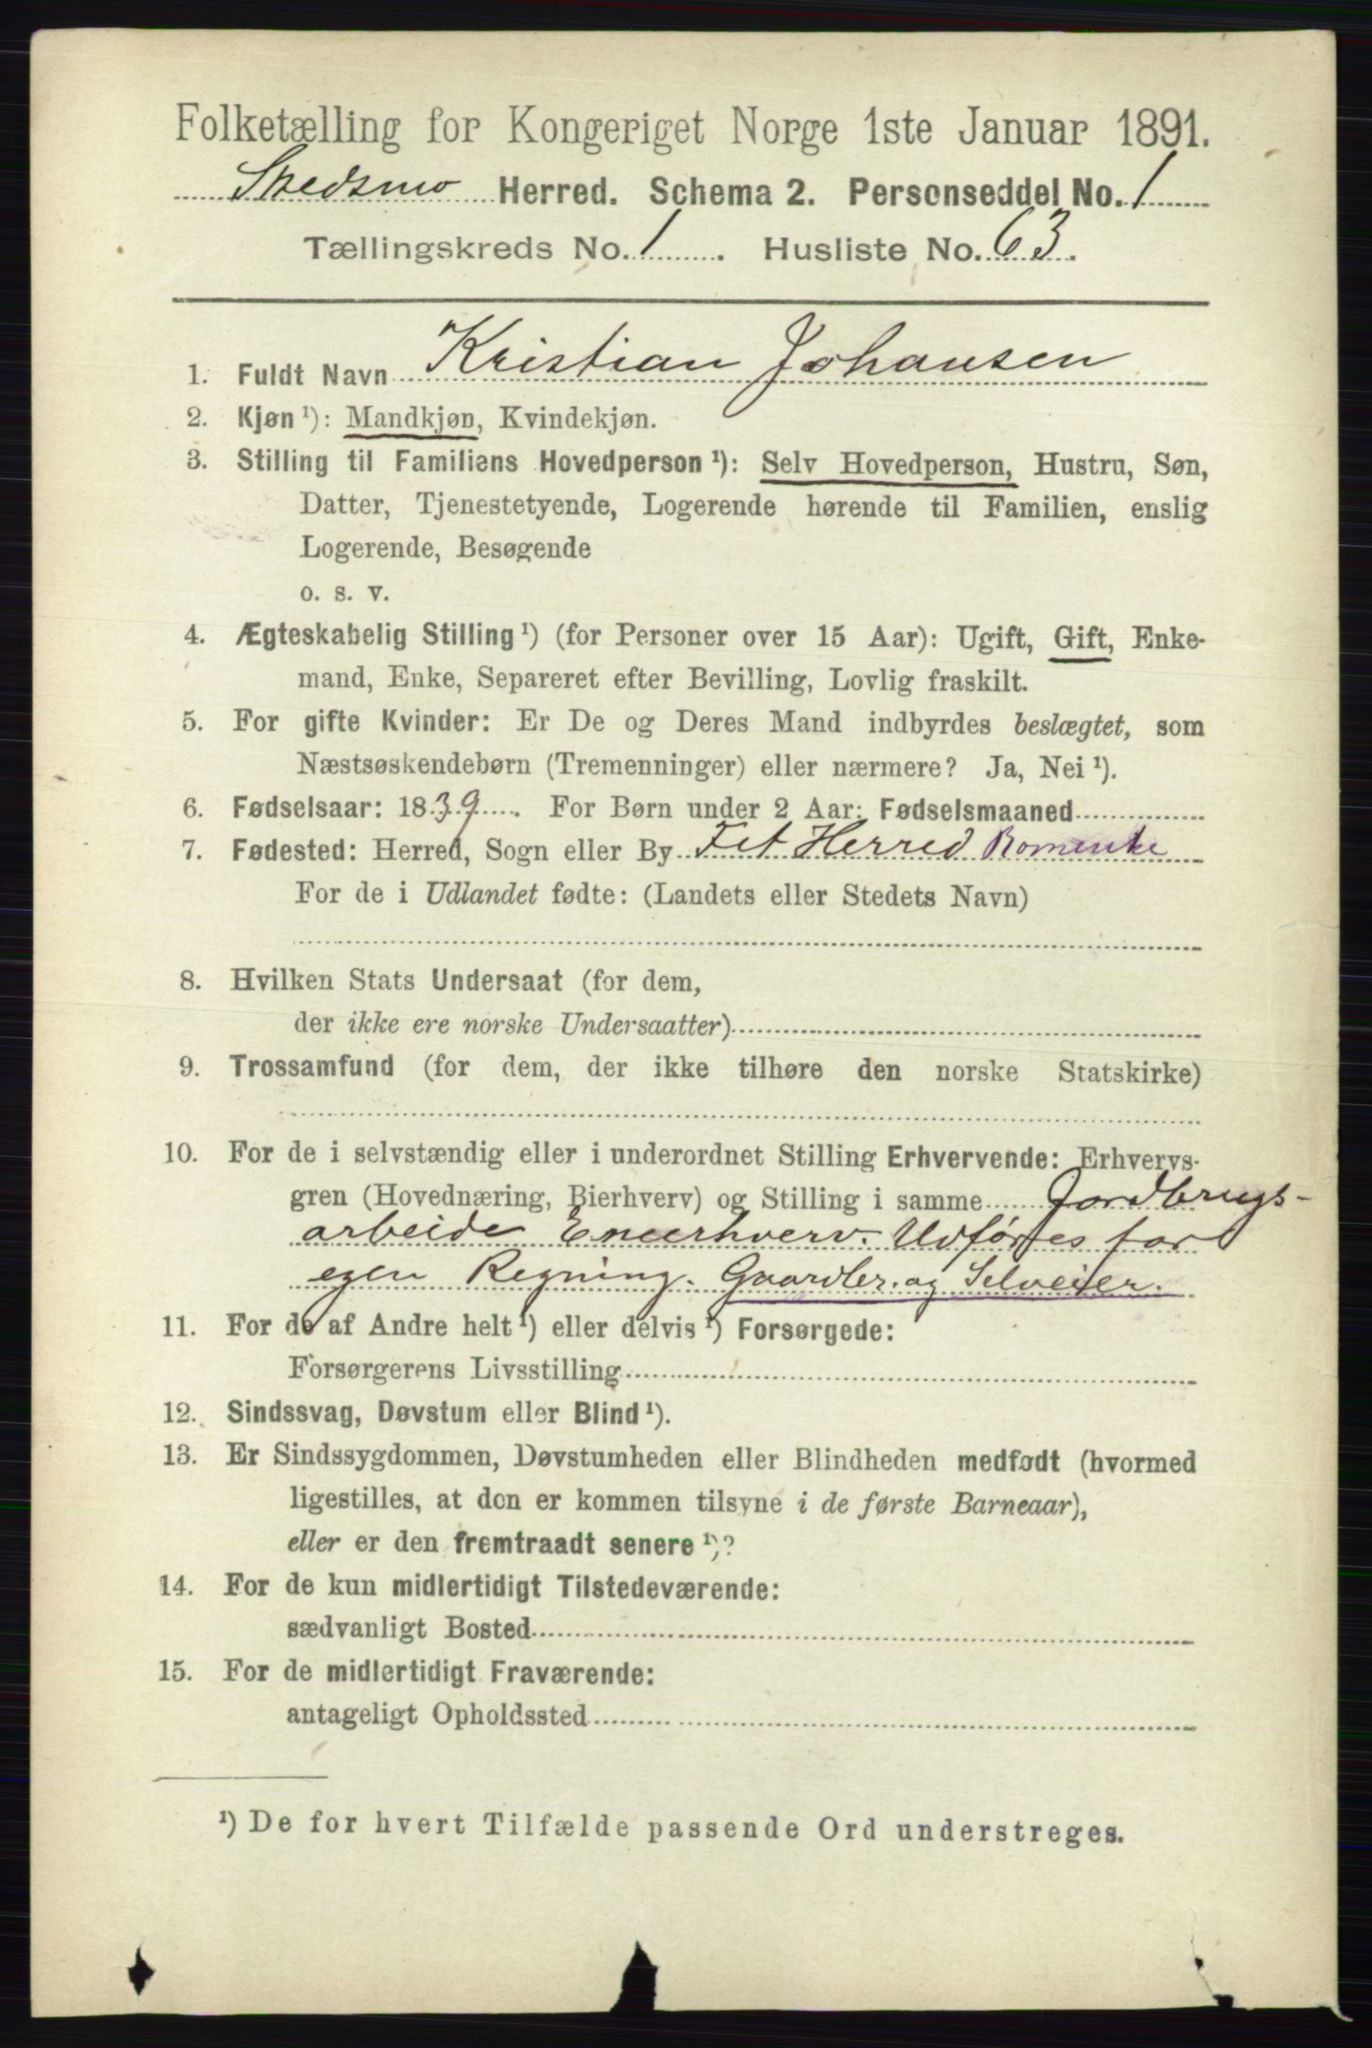 Folketælling for Kongeriget Norge 1ste Januar 1891.
Skedsmo Herred. Schema 2. Personseddel No. 1
Tællingskreds No. 1. Husliste No. 63.
1. Fuldt Navn Kristian Johansen
2. Kjøn ¹): Mandkjøn, Kvindekjøn.
3. Stilling til Familiens Hovedperson ¹): Selv Hovedperson, Hustru, Søn,
Datter, Tjenestetyende, Logerende hørende til Familien, enslig
Logerende, Besøgende
o. s. v.
4. Ægteskabelig Stilling ¹) (for Personer over 15 Aar): Ugift, Gift, Enke-
mand, Enke, Separeret efter Bevilling, Lovlig fraskilt.
5. For gifte Kvinder: Er De og Deres Mand indbyrdes beslægtet, som
Næstsøskendebørn (Tremenninger) eller nærmere? Ja, Nei ¹).
6. Fødselsaar: 1839. For Børn under 2 Aar: Fødselsmaaned
7. Fødested: Herred, Sogn eller By Fet Herred Romerike
For de i Udlandet fødte: (Landets eller Stedets Navn)
8. Hvilken Stats Undersaat (for dem,
der ikke ere norske Undersaatter)
9. Trossamfund (for dem, der ikke tilhøre den norske Statskirke)
10. For de i selvstændig eller i underordnet Stilling Erhvervende: Erhvervs-
gren (Hovednæring, Bierhverv) og Stilling i samme Jordbrugs-
arbeide Eneerhverv. Udføres for
egen Regning. Gaardbr. og Selveier.
11. For de af Andre helt ¹) eller delvis ¹) Forsørgede:
Forsørgerens Livsstilling
12. Sindssvag, Døvstum eller Blind ¹).
13. Er Sindssygdommen, Døvstumheden eller Blindheden medfødt (hvormed
ligestilles, at den er kommen tilsyne i de første Barneaar),
eller er den fremtraadt senere ¹)?
14. For de kun midlertidigt Tilstedeværende:
sædvanligt Bosted
15. For de midlertidigt Fraværende:
antageligt Opholdssted
¹) De for hvert Tilfælde passende Ord understreges.